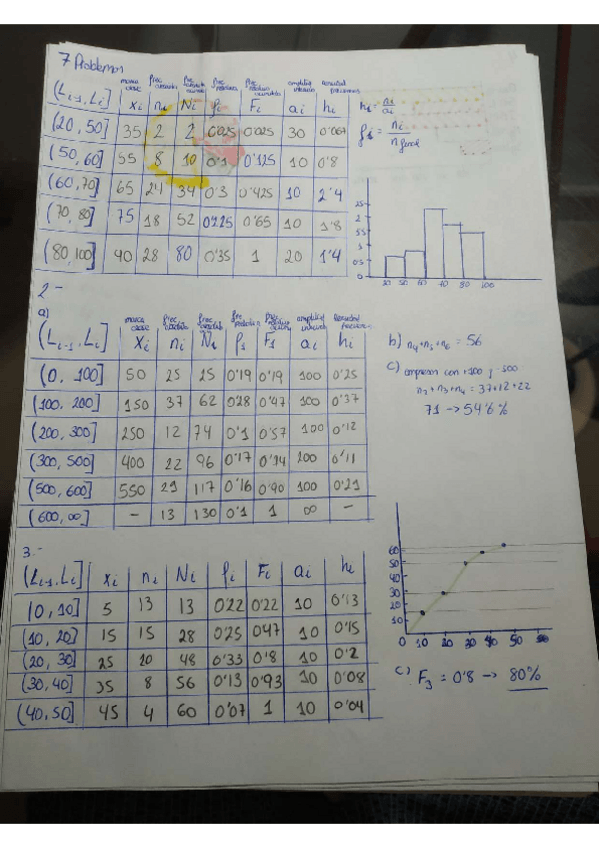 7 Problemas
marca clase frec absoluta frec absoluta acumula frec relativa frec relativa acumulada amplitud intervalo densidad frecuencia
(Li-1, Li] xi ni Ni fi Fi ai hi
(20, 50] 35 2 2 0'025 0'025 30 0'067
(50, 60] 55 8 10 0'1 0'125 10 0'8
(60, 70] 65 24 34 0'3 0'425 10 2'4
(70, 80] 75 18 52 0'225 0'65 10 1'8
(80, 100] 90 28 80 0'35 1 20 1'4
hi = ni/ai
fi = ni/n
2'5
2
1'5
1
0'5
0
20 50 60 70 80 100
2-
a)
marca clase frec absoluta
(Li-1, Li] xi ni Ni fi Fi ai hi
(0, 100] 50 25 25 0'19 0'19 100 0'25
(100, 200] 150 37 62 0'28 0'47 100 0'37
(200, 300] 250 12 74 0'1 0'57 100 0'12
(300, 500] 400 22 96 0'17 0'74 200 0'11
(500, 600] 550 21 117 0'16 0'90 100 0'21
(600, ∞] - 13 130 0'1 1 ∞ -
b) n4+n5+n6 = 56
c) empresas con +100 y -500
n2+n3+n4 = 37+12+22
71 → 54'6%
3.-
(Li-1, Li] xi ni Ni fi Fi ai hi
[0, 10] 5 13 13 0'22 0'22 10 0'13
(10, 20] 15 15 28 0'25 0'47 10 0'15
(20, 30] 25 20 48 0'33 0'8 10 0'2
(30, 40] 35 8 56 0'13 0'93 10 0'08
(40, 50] 45 4 60 0'07 1 10 0'04
60
50
40
30
20
10
0 10 20 30 40 50
c) F3 = 0'8 → 80%